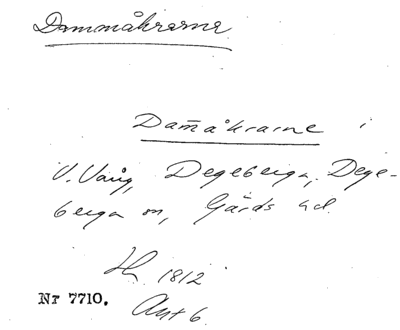 Dammåkrarna
Dam̄åkrarne i
V. Vång, Degeberga, Dege-
berga sn, Gärds hd.
H 1812
Nr 7710. Akt 6